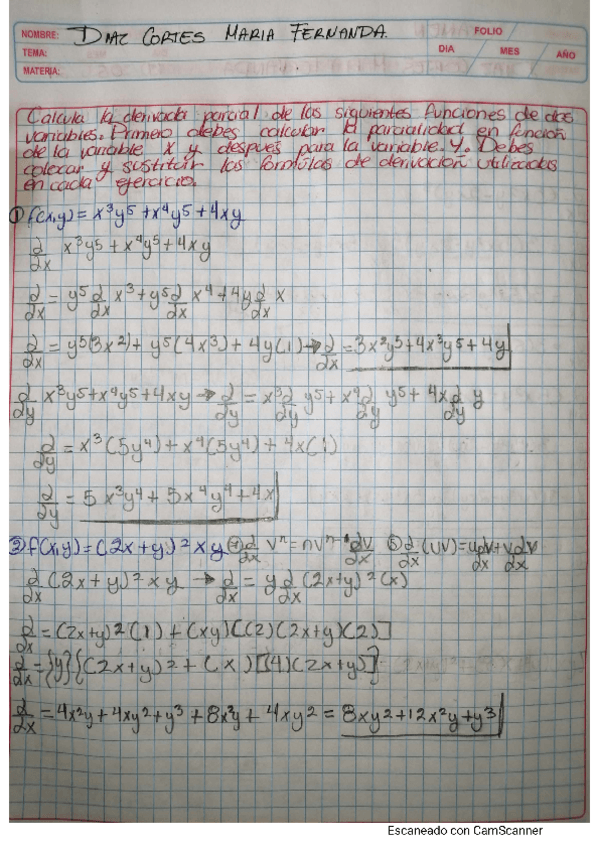 NOMBRE: DIAZ CORTES MARIA FERNANDA. FOLIO
TEMA: DIA MES AÑO
MATERIA:
Calcula la derivada parcial de las siguientes funciones de dos
variables. Primero debes calcular la parcialidad en función
de la variable x y después para la variable y. Debes
colocar y sustituir las formúlas de derivación utilizadas
en cada ejercicio.
① f(x,y) = x³y⁵ + x⁴y⁵ + 4xy
∂/∂x x³y⁵ + x⁴y⁵ + 4xy
∂/∂x = y⁵ ∂/∂x x³ + y⁵ ∂/∂x x⁴ + 4y ∂/∂x x
∂/∂x = y⁵(3x²) + y⁵(4x³) + 4y(1) → ∂/∂x = 3x²y⁵ + 4x³y⁵ + 4y
∂/∂y x³y⁵ + x⁴y⁵ + 4xy → ∂/∂y = x³ ∂/∂y y⁵ + x⁴ ∂/∂y y⁵ + 4x ∂/∂y y
∂/∂y = x³(5y⁴) + x⁴(5y⁴) + 4x(1)
∂/∂y = 5x³y⁴ + 5x⁴y⁴ + 4x
f(x,y) = (2x+y)² xy ④ ∂/∂x vⁿ = nvⁿ⁻¹ dv/∂x ∂/∂x (uv) = u dv/∂x + v dv/∂x
∂/∂x (2x+y)² xy → ∂/∂x = y ∂/∂x (2x+y)² (x)
∂/∂x = (2x+y)² (1) + (xy)[(2)(2x+y)(2)]
∂/∂x = {y}{(2x+y)² + (x)[(4)(2x+y)]}
∂/∂x = 4x²y + 4xy² + y³ + 8x²y + 4xy² = 8xy² + 12x²y + y³
Escaneado con CamScanner